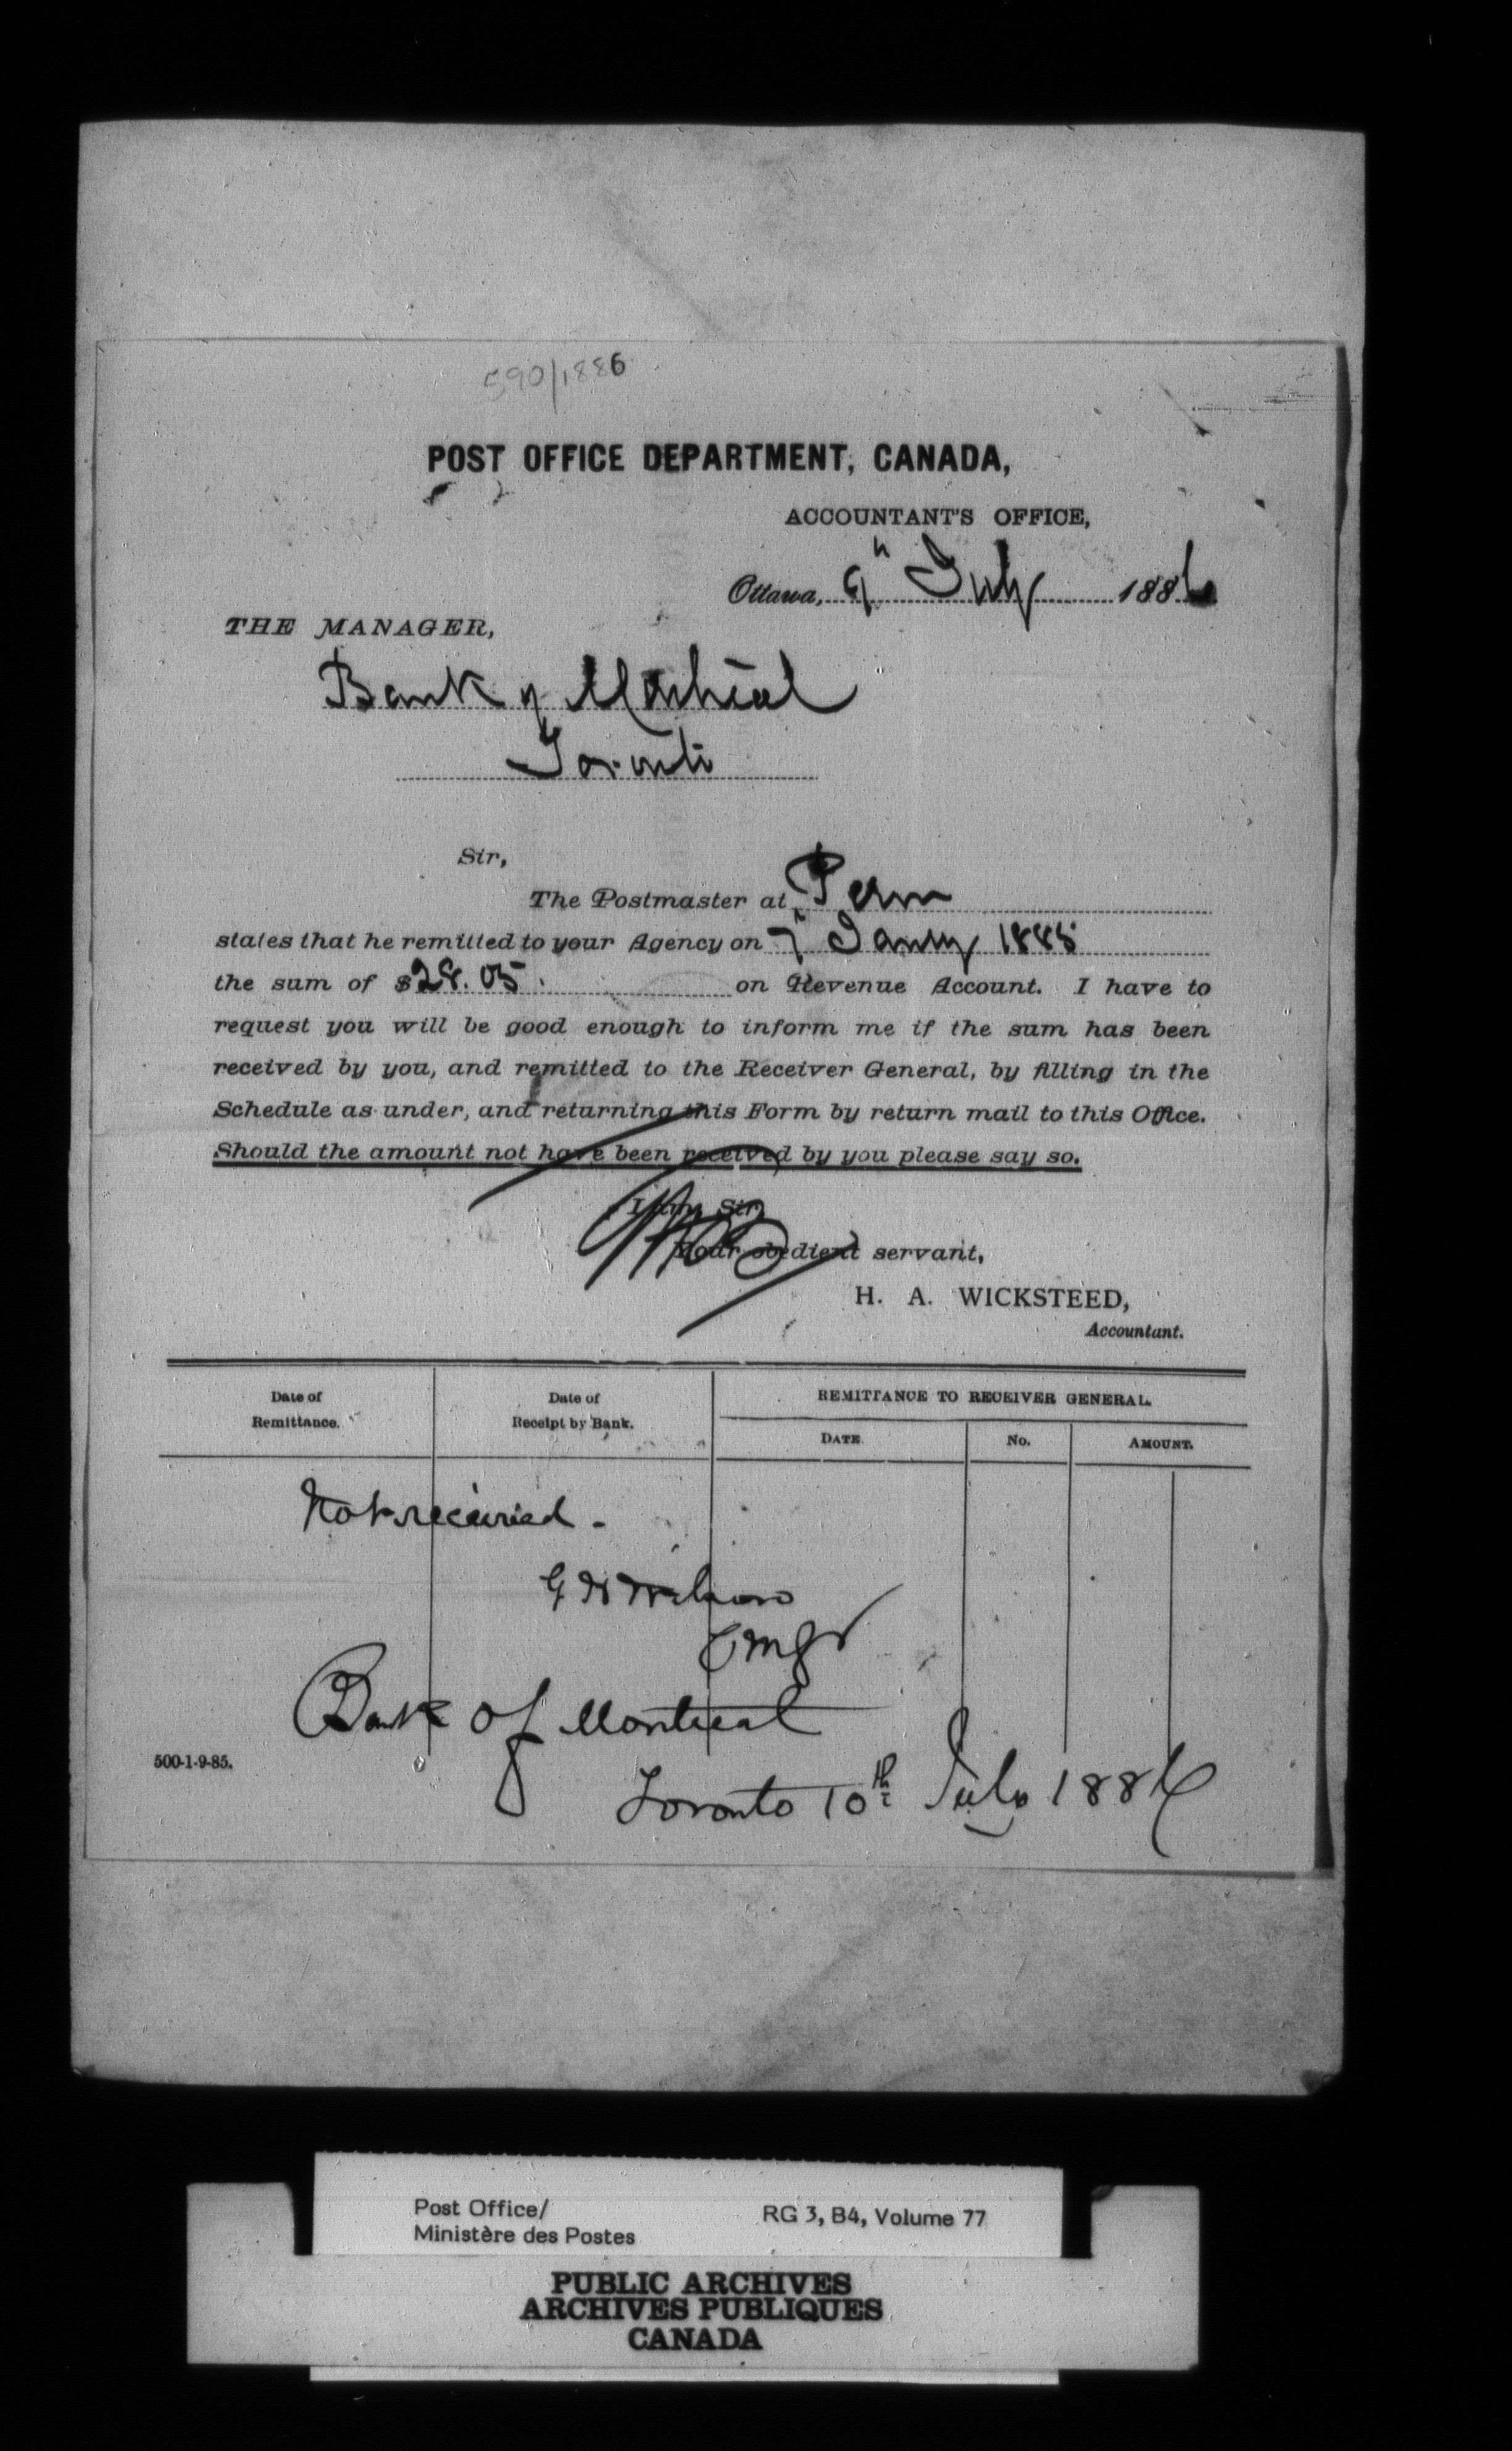 590/1886
POST OFFICE DEPARTMENT, CANADA,
ACCOUNTANT'S OFFICE,
Ottawa, 9th July 1886
THE MANAGER,
Bank of Montreal
Toronto
Sir,
The Postmaster at
states that he remitted to your Agency on 7th Janry 1885
the sum of $28.05. on Revenue Account. I have to
request you will be good enough to inform me if the sum has been
received by you, and remitted to the Receiver General, by filling in the
Schedule as under, and returning this Form by return mail to this Office.
Should the amount not have been received by you please say so.
I am, Sir,
Your obedient servant,
H. A. WICKSTEED,
Accountant.
Date of Remittance.
Date of Receipt by Bank.
REMITTANCE TO RECEIVER GENERAL.
DATE
No.
AMOUNT.
Not received -
Bank of Montreal
500-1-9-85.
Toronto 10th July 1886
Post Office/
Ministère des Postes
RG 3, B4, Volume 77
PUBLIC ARCHIVES
ARCHIVES PUBLIQUES
CANADA